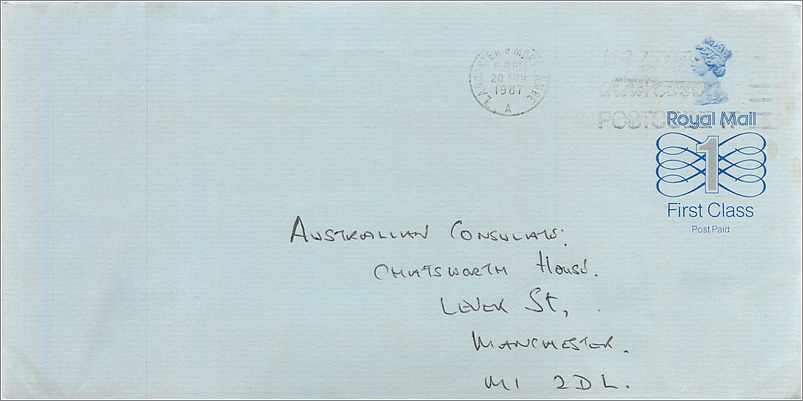 1987
A
POSTCODE
Royal Mail
1
First Class
Post Paid
AUSTRALIAN CONSULATE.
CHATSWORTH HOUSE.
LEVER St,
MANCHESTER.
M1 2DL.